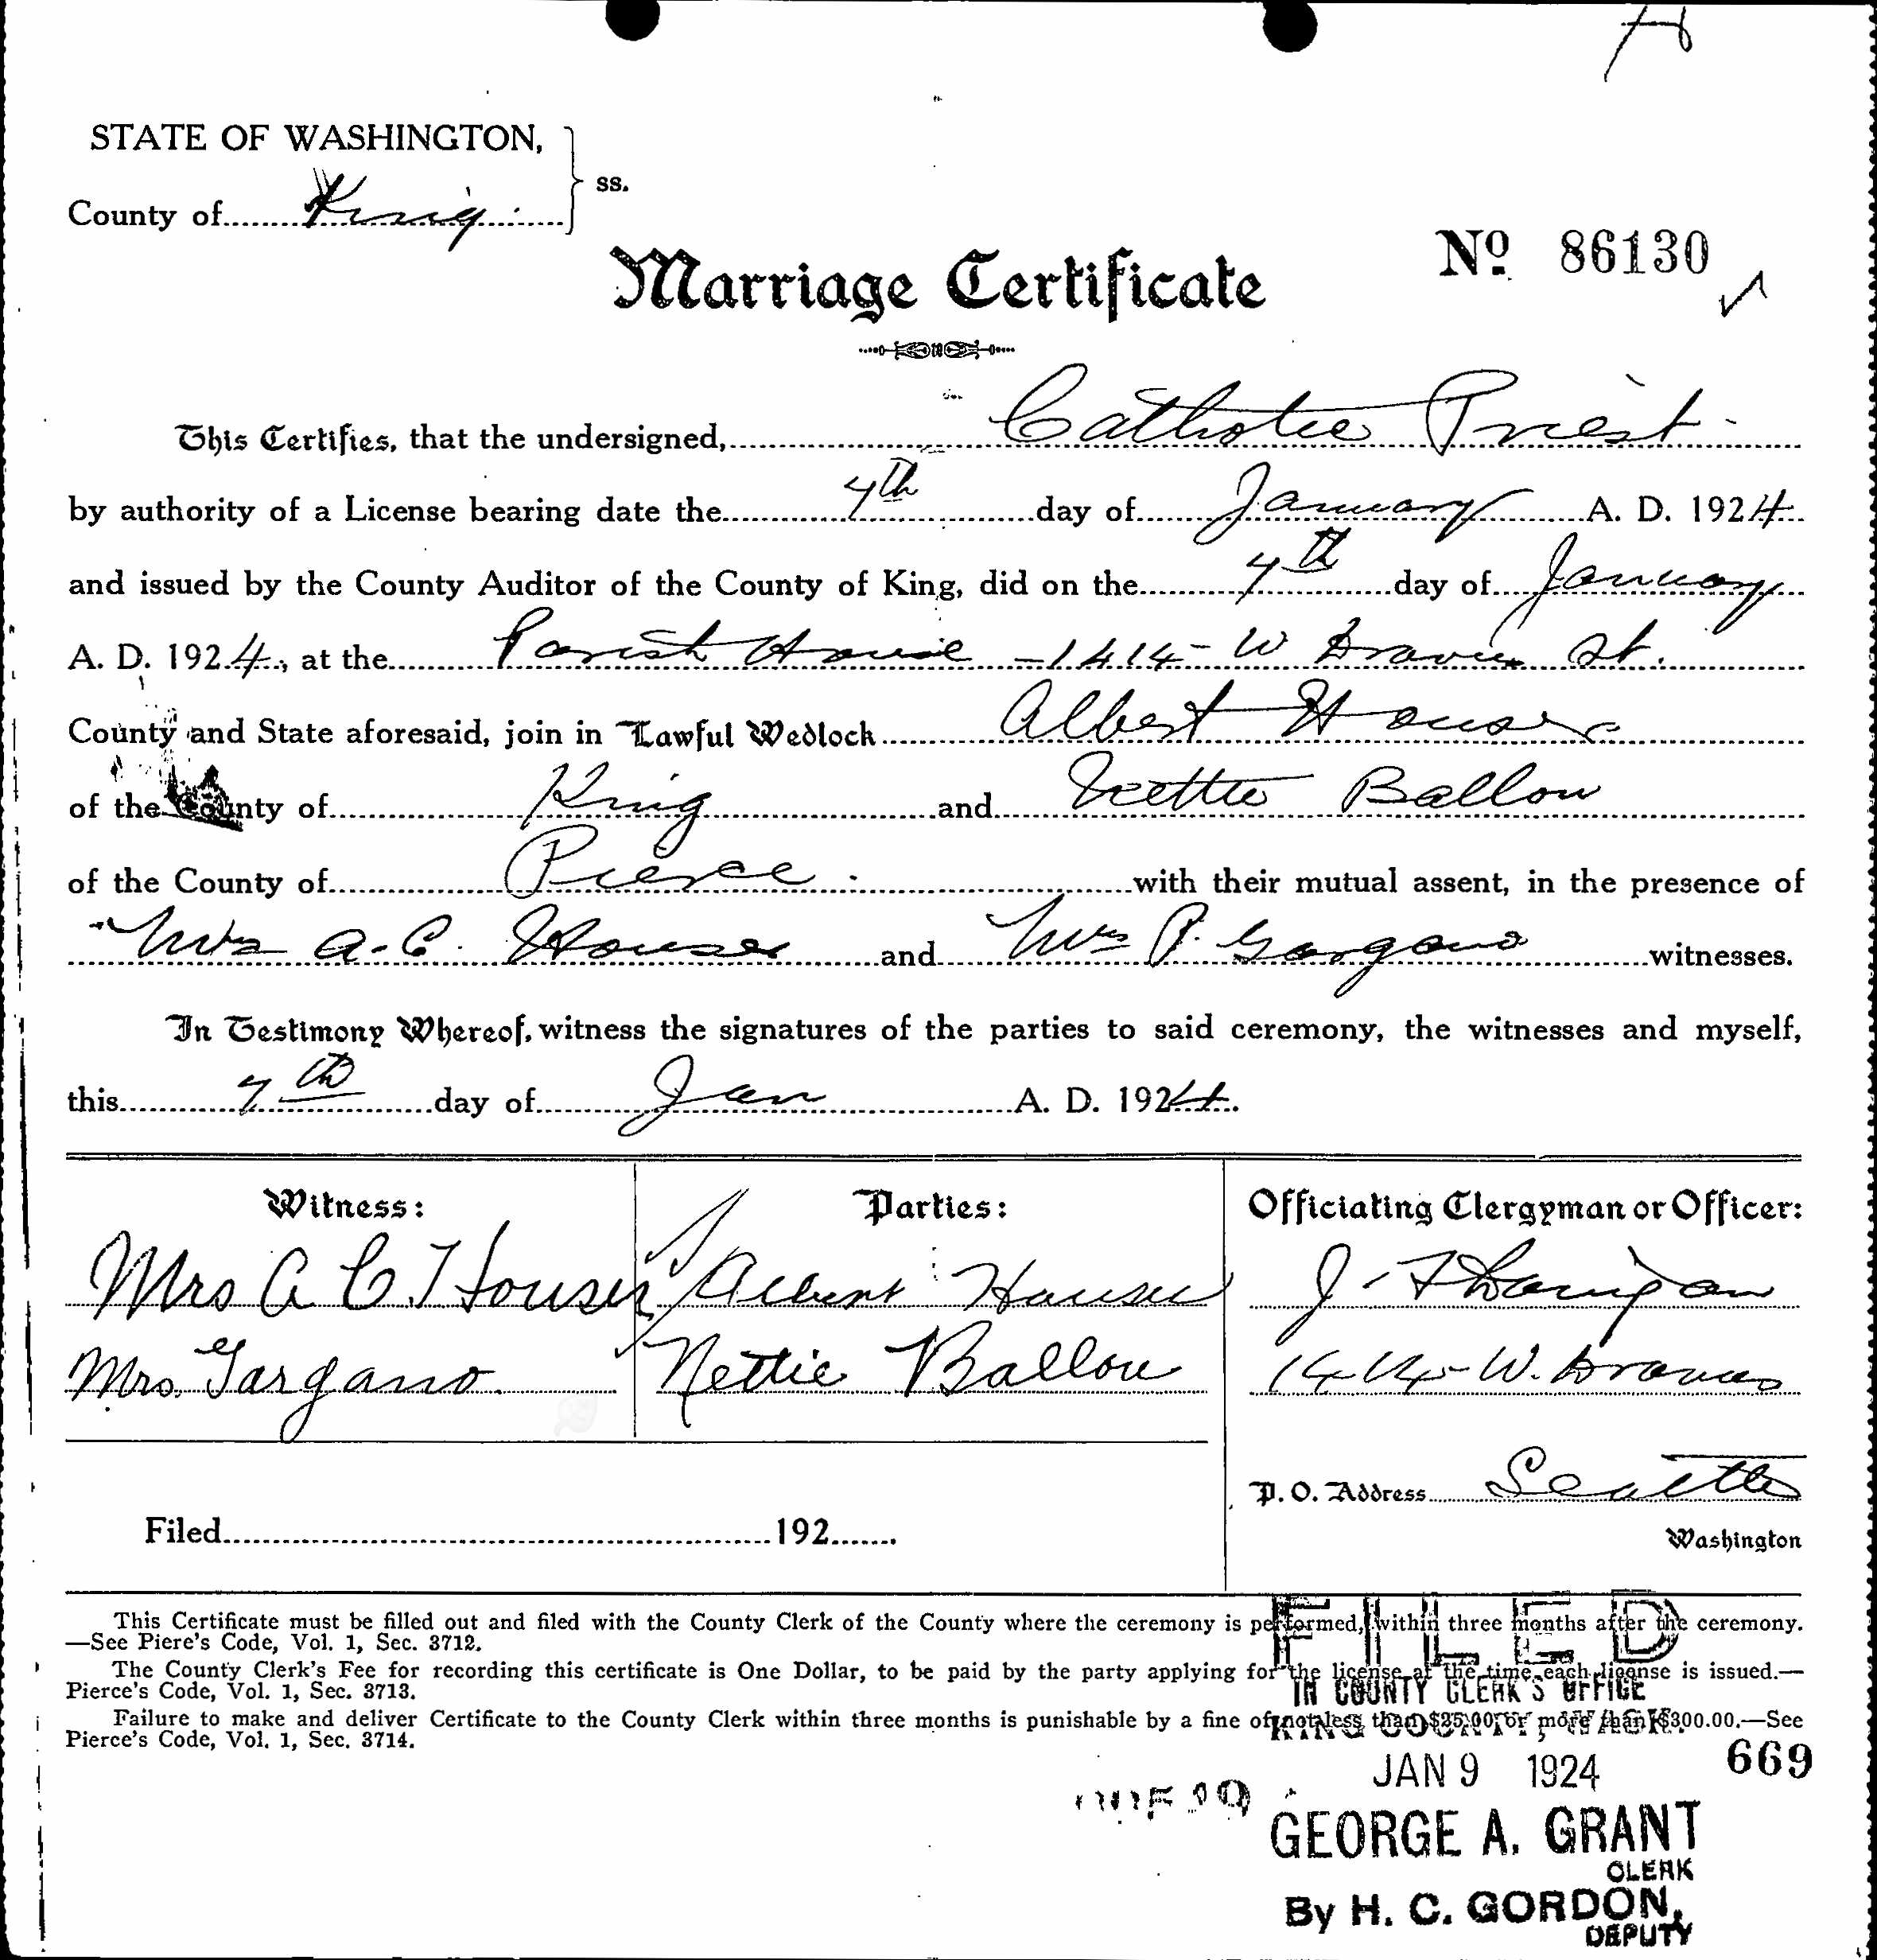 STATE OF WASHINGTON,
County of King ss.
Nº 86130
Marriage Certificate
This Certifies, that the undersigned, Catholic Priest
by authority of a License bearing date the 7th day of January A. D. 1924
and issued by the County Auditor of the County of King, did on the 7th day of January
A. D. 1924, at the Parish House - 1414 - W St.
County and State aforesaid, join in Lawful Wedlock Albert Houser
of the County of King and Nettie Ballou
of the County of Pierce with their mutual assent, in the presence of
Mrs A. C. Houser and Mrs P. Gargano witnesses.
In Testimony Whereof, witness the signatures of the parties to said ceremony, the witnesses and myself,
this 7th day of Jan A. D. 1924.
Witness: Parties: Officiating Clergyman or Officer:
Mrs A C Houser Albert Houser J.
Mrs. Gargano Nettie Ballou 1414 - W.
P. O. Address Seattle
Filed 192
Washington
This Certificate must be filled out and filed with the County Clerk of the County where the ceremony is performed, within three months after the ceremony.
—See Piere's Code, Vol. 1, Sec. 3712.
The County Clerk's Fee for recording this certificate is One Dollar, to be paid by the party applying for the license at the time each license is issued.—
Pierce's Code, Vol. 1, Sec. 3713.
Failure to make and deliver Certificate to the County Clerk within three months is punishable by a fine of not less than $25.00, or more than $300.00.—See
Pierce's Code, Vol. 1, Sec. 3714.
FILED
IN COUNTY CLERK'S OFFICE
KING COUNTY, WASH.
JAN 9 1924 669
GEORGE A. GRANT
CLERK
By H. C. GORDON,
DEPUTY